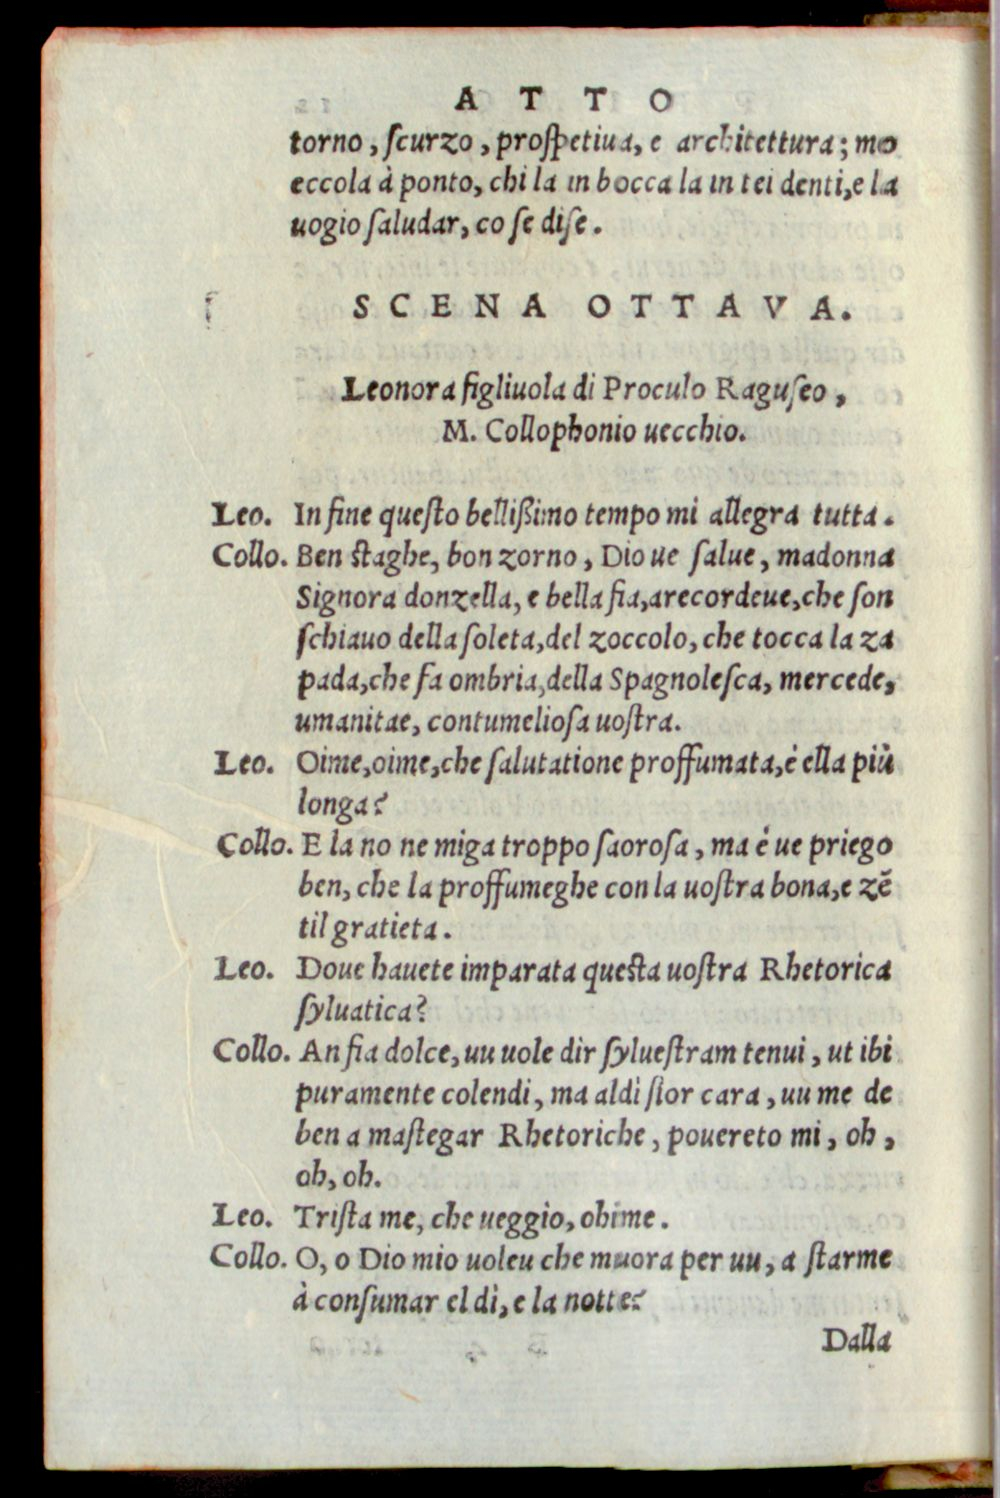 ATTO
torno, ſcurzo, proſpetiua, e architettura; mo
eccola à ponto, chi la in bocca la in tei denti, e la
uogio ſaludar, co ſe diſe.
SCENA OTTAVA.
Leonora figliuola di Proculo Raguſeo,
M. Collophonio uecchio.
Leo. In fine queſto belliſſimo tempo mi allegra tutta.
Collo. Ben ſtaghe, bon zorno, Dio ue ſalue, madonna
Signora donzella, e bella fia, arecordeue, che ſon
ſchiauo della ſoleta, del zoccolo, che tocca la za
pada, che fa ombria, della Spagnoleſca, mercede,
umanitae, contumelioſa uoſtra.
Leo. Oime, oime, che ſalutatione proffumata, è ella più
longa?
Collo. E la no ne miga troppo ſaoroſa, ma é ue priego
ben, che la proffumeghe con la uoſtra bona, e zẽ
til gratieta.
Leo. Doue hauete imparata queſta uoſtra Rhetorica
ſyluatica?
Collo. An fia dolce, uu uole dir ſylueſtram tenui, ut ibi
puramente colendi, ma aldì ſior cara, uu me de
ben a maſtegar Rhetoriche, pouereto mi, oh,
oh, oh.
Leo. Triſta me, che ueggio, ohime.
Collo. O, o Dio mio uoleu che muora per uu, a ſtarme
à conſumar el dì, e la notte?
Dalla